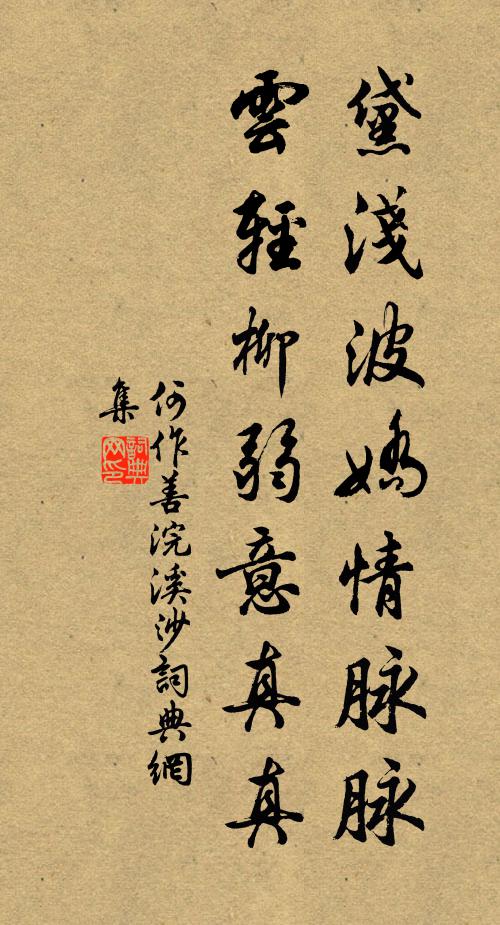 黛淺波嬌情脉脉
雲輕柳弱意真真
何作善浣溪沙詞典網
集
詞典网印